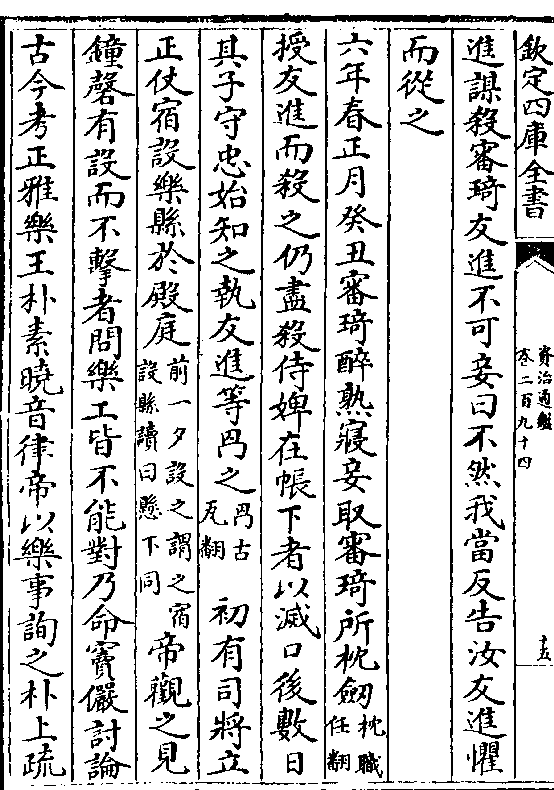 欽定四庫全書
資治通鑑
卷二百九十四
十五
進謀殺審琦友進不可妾曰不然我當反告汝友進懼
而從之
六年春正月癸丑審琦醉熟寢妾取審琦所枕劒枕職任翻
授友進而殺之仍盡殺侍婢在帳下者以滅口後數日
其子守忠始知之執友進等冎之冎古瓦翻初有司將立
正仗宿設樂縣於殿庭前一夕設之謂之宿設縣讀曰懸下同帝觀之見
鐘磬有設而不擊者問樂工皆不能對乃命竇儼討論
古今考正雅樂王朴素曉音律帝以樂事詢之朴上疏